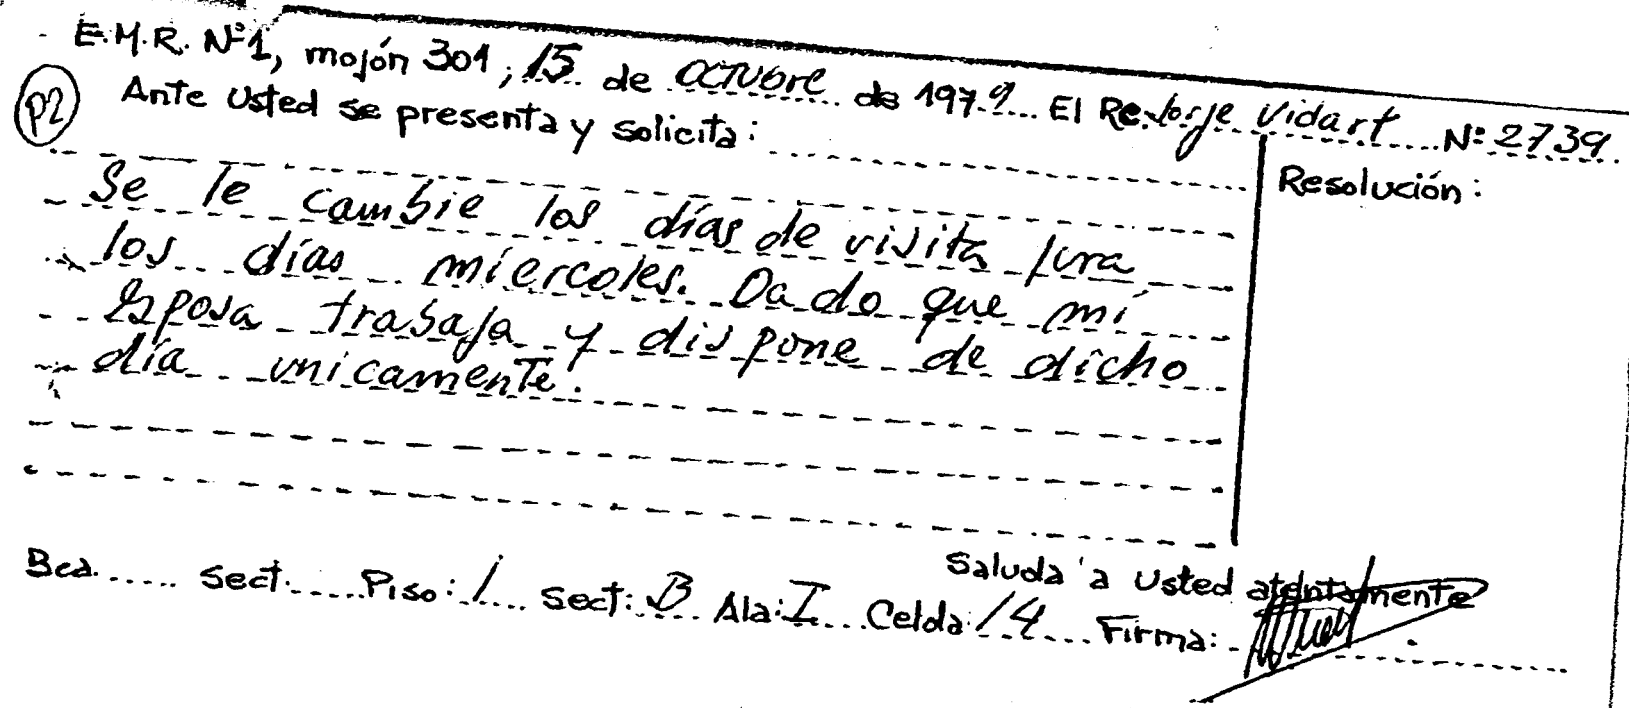 E.M.R. Nº1, mojón 301, 15 de octubre de 1979 El Rec. Jorje Vidart Nº 2739
P2 Ante Usted se presenta y solicita:
Resolución:
Se le cambie los días de visita para
los días miercoles. Dado que mi
esposa trabaja y dispone de dicho
día unicamente.
Saluda a Usted atentamente
Bca. Sect. Piso: 1 Sect: B Ala: I Celda: 14 Firma: